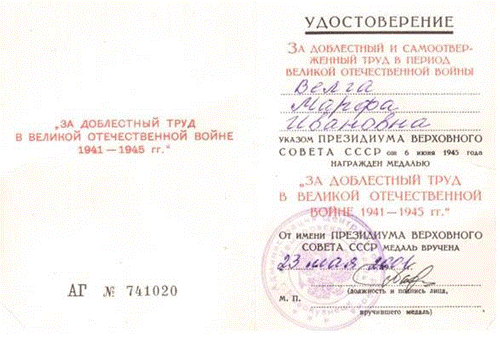 „ЗА ДОБЛЕСТНЫЙ ТРУД
В ВЕЛИКОЙ ОТЕЧЕСТВЕННОЙ ВОЙНЕ
1941—1945 гг."
АГ № 741020
УДОСТОВЕРЕНИЕ
ЗА ДОБЛЕСТНЫЙ И САМООТВЕР-
ЖЕННЫЙ ТРУД В ПЕРИОД
ВЕЛИКОЙ ОТЕЧЕСТВЕННОЙ ВОЙНЫ
Велга
Марфа
Ивановна
УКАЗОМ ПРЕЗИДИУМА ВЕРХОВНОГО
СОВЕТА СССР от 6 июня 1945 года
НАГРАЖДЕН МЕДАЛЬЮ
„ЗА ДОБЛЕСТНЫЙ ТРУД
В ВЕЛИКОЙ ОТЕЧЕСТВЕННОЙ
ВОЙНЕ 1941—1945 гг."
ОТ ИМЕНИ ПРЕЗИДИУМА ВЕРХОВНОГО
СОВЕТА СССР МЕДАЛЬ ВРУЧЕНА
23 мая
(должность и подпись лица,
М. П.
вручившего медаль)